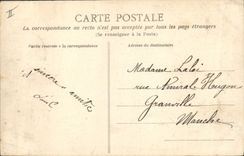 II
CARTE POSTALE
La correspondance au recto n'est pas acceptée par tous les pays étrangers
(Se renseigner à la Poste)
Partie réservée à la correspondance
Adresse du destinataire
Madame
rue Amiral Hugon
Granville
Manche